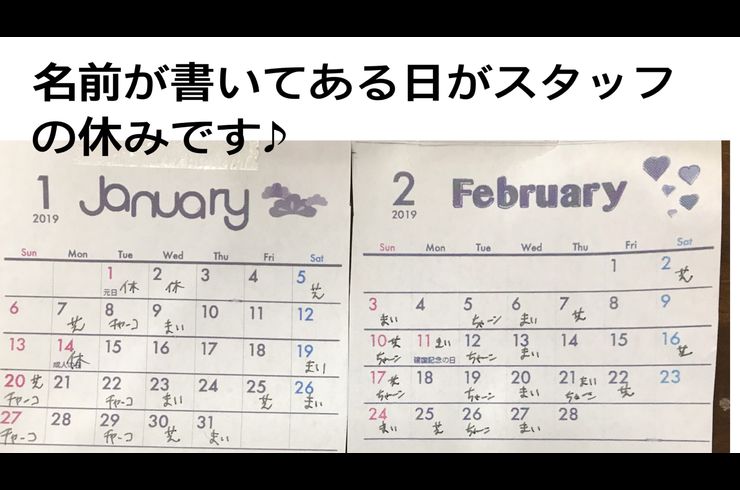 名前が書いてある日がスタッフ
の休みです♪
1 January
2019
Sun Mon Tue Wed Thu Fri Sat
1 2 3 4 5
元日 休 休
6 7 8 9 10 11 12
チャーコ まい
13 14 15 16 17 18 19
成人 休 まい
20 21 22 23 24 25 26
チャーコ チャーコ まい まい
27 28 29 30 31
チャーコ チャーコ まい
2 February
2019
Sun Mon Tue Wed Thu Fri Sat
1 2
3 4 5 6 7 8 9
まい ちゃーン まい
10 11 まい 12 13 14 15 16
ちゃーン 建国記念の日 ちゃーン まい
17 18 19 20 21 まい 22 23
ちゃーン ちゃーン まい ちゃーン
24 25 26 27 28
まい ちゃーン まい